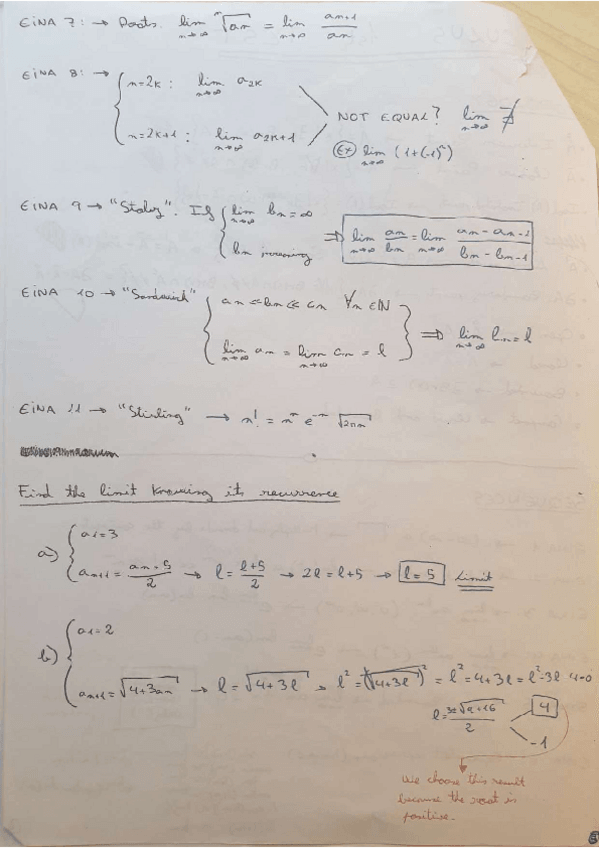 EINA 7: → Roots. lim n→∞ ⁿ√an = lim n→∞ an+1/an
EINA 8: → { n=2k : lim n→∞ a2k
n=2k+1 : lim n→∞ a2k+1
NOT EQUAL? lim n→∞ ∄
Ex lim n→∞ (1+(-1)ⁿ)
EINA 9 → "Stolz". If { lim n→∞ bn = ∞
bn increasing
⇒ lim n→∞ an/bn = lim n→∞ (an - an-1)/(bn - bn-1)
EINA 10 → "Sandwich" { an ≤ bn ≤ cn ∀n ∈ ℕ
lim n→∞ an = lim n→∞ cn = l } ⇒ lim n→∞ bn = l
EINA 11 → "Stirling" → n! = nⁿ e⁻ⁿ √2πn
Find the limit knowing its recurrence
a) { a1=3
an+1 = (an+5)/2 → l = (l+5)/2 → 2l = l+5 → l=5 Limit
b) { a1=2
an+1 = √4+3an → l = √4+3l → l² = (√4+3l)² = l² = 4+3l = l²-3l-4=0
l = (3±√9+16)/2
4
-1
We choose this result
because the root is
positive.